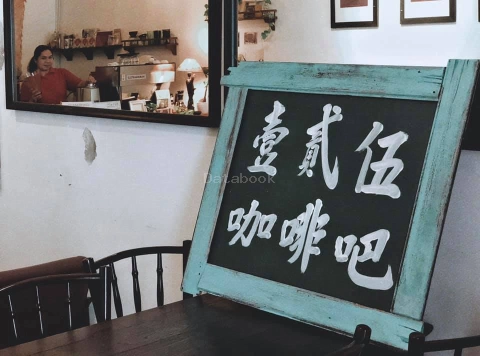 壹貳伍
咖啡吧
Databook